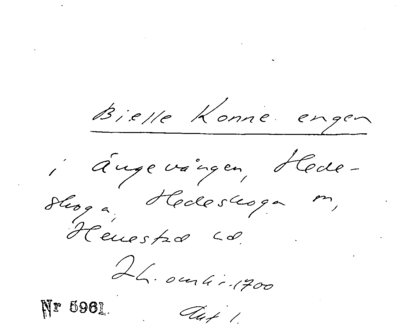 Bielle Konne engen
i Ängevången, Hede-
skoga, Hedeskoga sn,
Herrestad hd.
Lh. omkr. 1700
Akt 1.
Nr 5961.